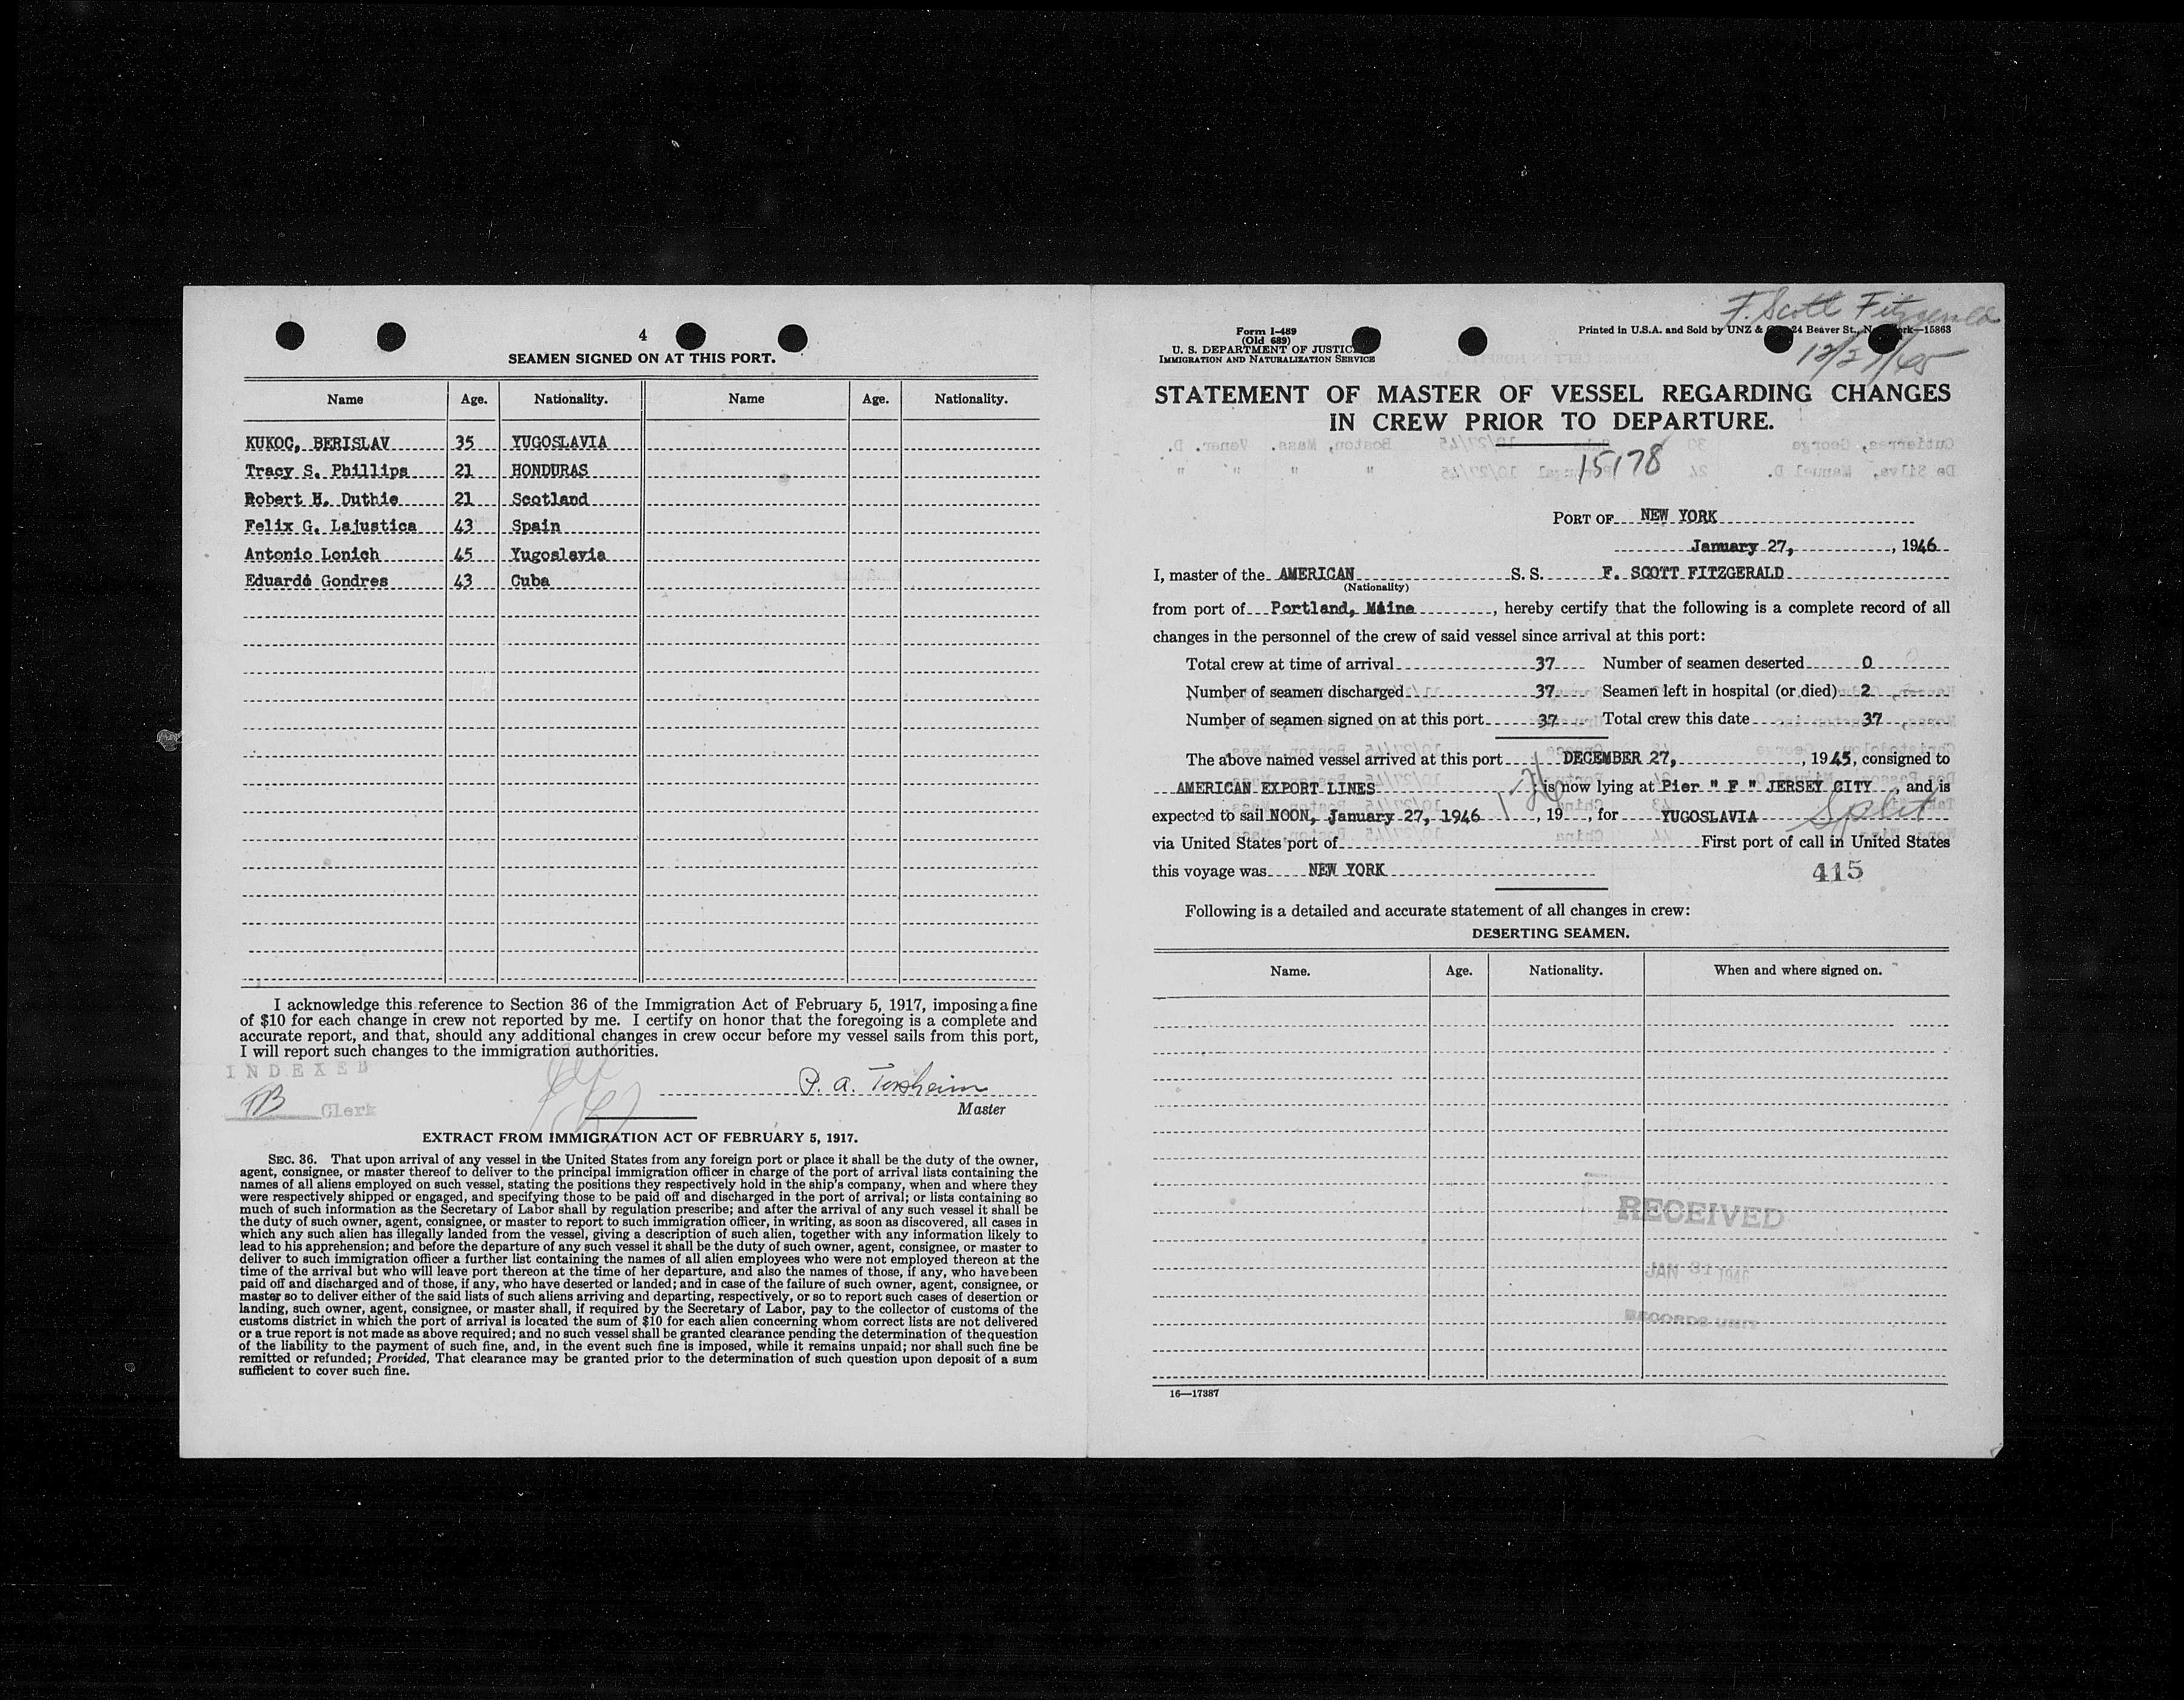 4
SEAMEN SIGNED ON AT THIS PORT.
Name Age. Nationality. Name Age. Nationality.
KUKOC, BERISLAV 35 YUGOSLAVIA
Tracy S. Phillips 21 HONDURAS
Robert H. Duthie 21 Scotland
Felix G. Lajustica 43 Spain
Antonio Lonich 45 Yugoslavia
Eduardo Gondres 43 Cuba
I acknowledge this reference to Section 36 of the Immigration Act of February 5, 1917, imposing a fine
of $10 for each change in crew not reported by me. I certify on honor that the foregoing is a complete and
accurate report, and that, should any additional changes in crew occur before my vessel sails from this port,
I will report such changes to the immigration authorities.
INDEXED
Clerk
Master
EXTRACT FROM IMMIGRATION ACT OF FEBRUARY 5, 1917.
SEC. 36. That upon arrival of any vessel in the United States from any foreign port or place it shall be the duty of the owner,
agent, consignee, or master thereof to deliver to the principal immigration officer in charge of the port of arrival lists containing the
names of all aliens employed on such vessel, stating the positions they respectively hold in the ship's company, when and where they
were respectively shipped or engaged, and specifying those to be paid off and discharged in the port of arrival; or lists containing so
much of such information as the Secretary of Labor shall by regulation prescribe; and after the arrival of any such vessel it shall be
the duty of such owner, agent, consignee, or master to report to such immigration officer, in writing, as soon as discovered, all cases in
which any such alien has illegally landed from the vessel, giving a description of such alien, together with any information likely to
lead to his apprehension; and before the departure of any such vessel it shall be the duty of such owner, agent, consignee, or master to
deliver to such immigration officer a further list containing the names of all alien employees who were not employed thereon at the
time of the arrival but who will leave port thereon at the time of her departure, and also the names of those, if any, who have been
paid off and discharged and of those, if any, who have deserted or landed; and in case of the failure of such owner, agent, consignee, or
master so to deliver either of the said lists of such aliens arriving and departing, respectively, or so to report such cases of desertion or
landing, such owner, agent, consignee, or master shall, if required by the Secretary of Labor, pay to the collector of customs of the
customs district in which the port of arrival is located the sum of $10 for each alien concerning whom correct lists are not delivered
or a true report is not made as above required; and no such vessel shall be granted clearance pending the determination of the question
of the liability to the payment of such fine, and, in the event such fine is imposed, while it remains unpaid; nor shall such fine be
remitted or refunded; Provided, That clearance may be granted prior to the determination of such question upon deposit of a sum
sufficient to cover such fine.
F. Scott Fitzgerald
12/27/45
Form I-489
(Old 689)
U. S. DEPARTMENT OF JUSTICE
IMMIGRATION AND NATURALIZATION SERVICE
Printed in U.S.A. and Sold by UNZ & 24 Beaver St., 15863
STATEMENT OF MASTER OF VESSEL REGARDING CHANGES
IN CREW PRIOR TO DEPARTURE.
15178
PORT OF NEW YORK
January 27, , 1946
I, master of the AMERICAN S. S. F. SCOTT FITZGERALD
(Nationality)
from port of Portland, Maine , hereby certify that the following is a complete record of all
changes in the personnel of the crew of said vessel since arrival at this port:
Total crew at time of arrival 37 Number of seamen deserted 0
Number of seamen discharged 37 Seamen left in hospital (or died) 2
Number of seamen signed on at this port 37 Total crew this date 37
The above named vessel arrived at this port DECEMBER 27, , 1945, consigned to
AMERICAN EXPORT LINES ; is now lying at Pier " F " JERSEY CITY , and is
expected to sail NOON, January 27, 1946 , 19 , for YUGOSLAVIA Split
via United States port of First port of call in United States
this voyage was NEW YORK
415
Following is a detailed and accurate statement of all changes in crew:
DESERTING SEAMEN.
Name. Age. Nationality. When and where signed on.
RECEIVED
JAN 31 1946
RECORDS UNIT
16—17387